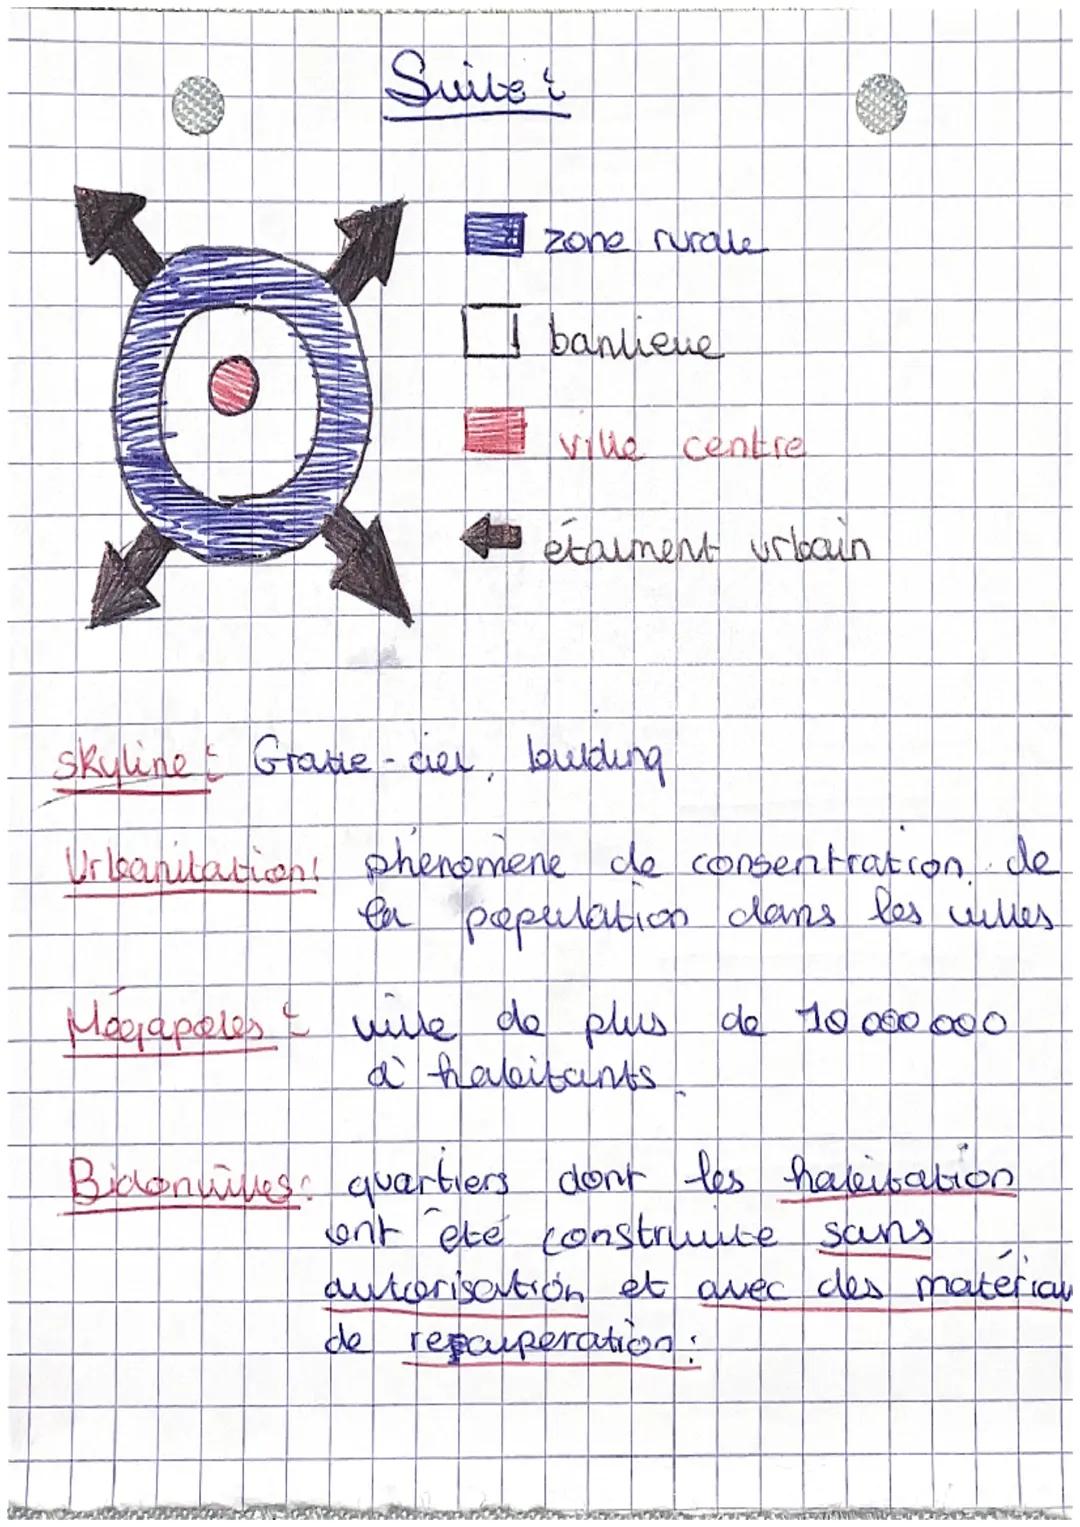 Suite :
zone rurale
banlieue
ville centre
étalment urbain
skyline : Gratte-ciel, building
Urbanitation : phénomène de consentration de
la population dans les villes
Mégapoles : ville de plus de 10 000 000
d'habitants.
Bidonvilles : quartiers dont les habitation
ont été construite sans
autorisation et avec des matériau
de recuperation :